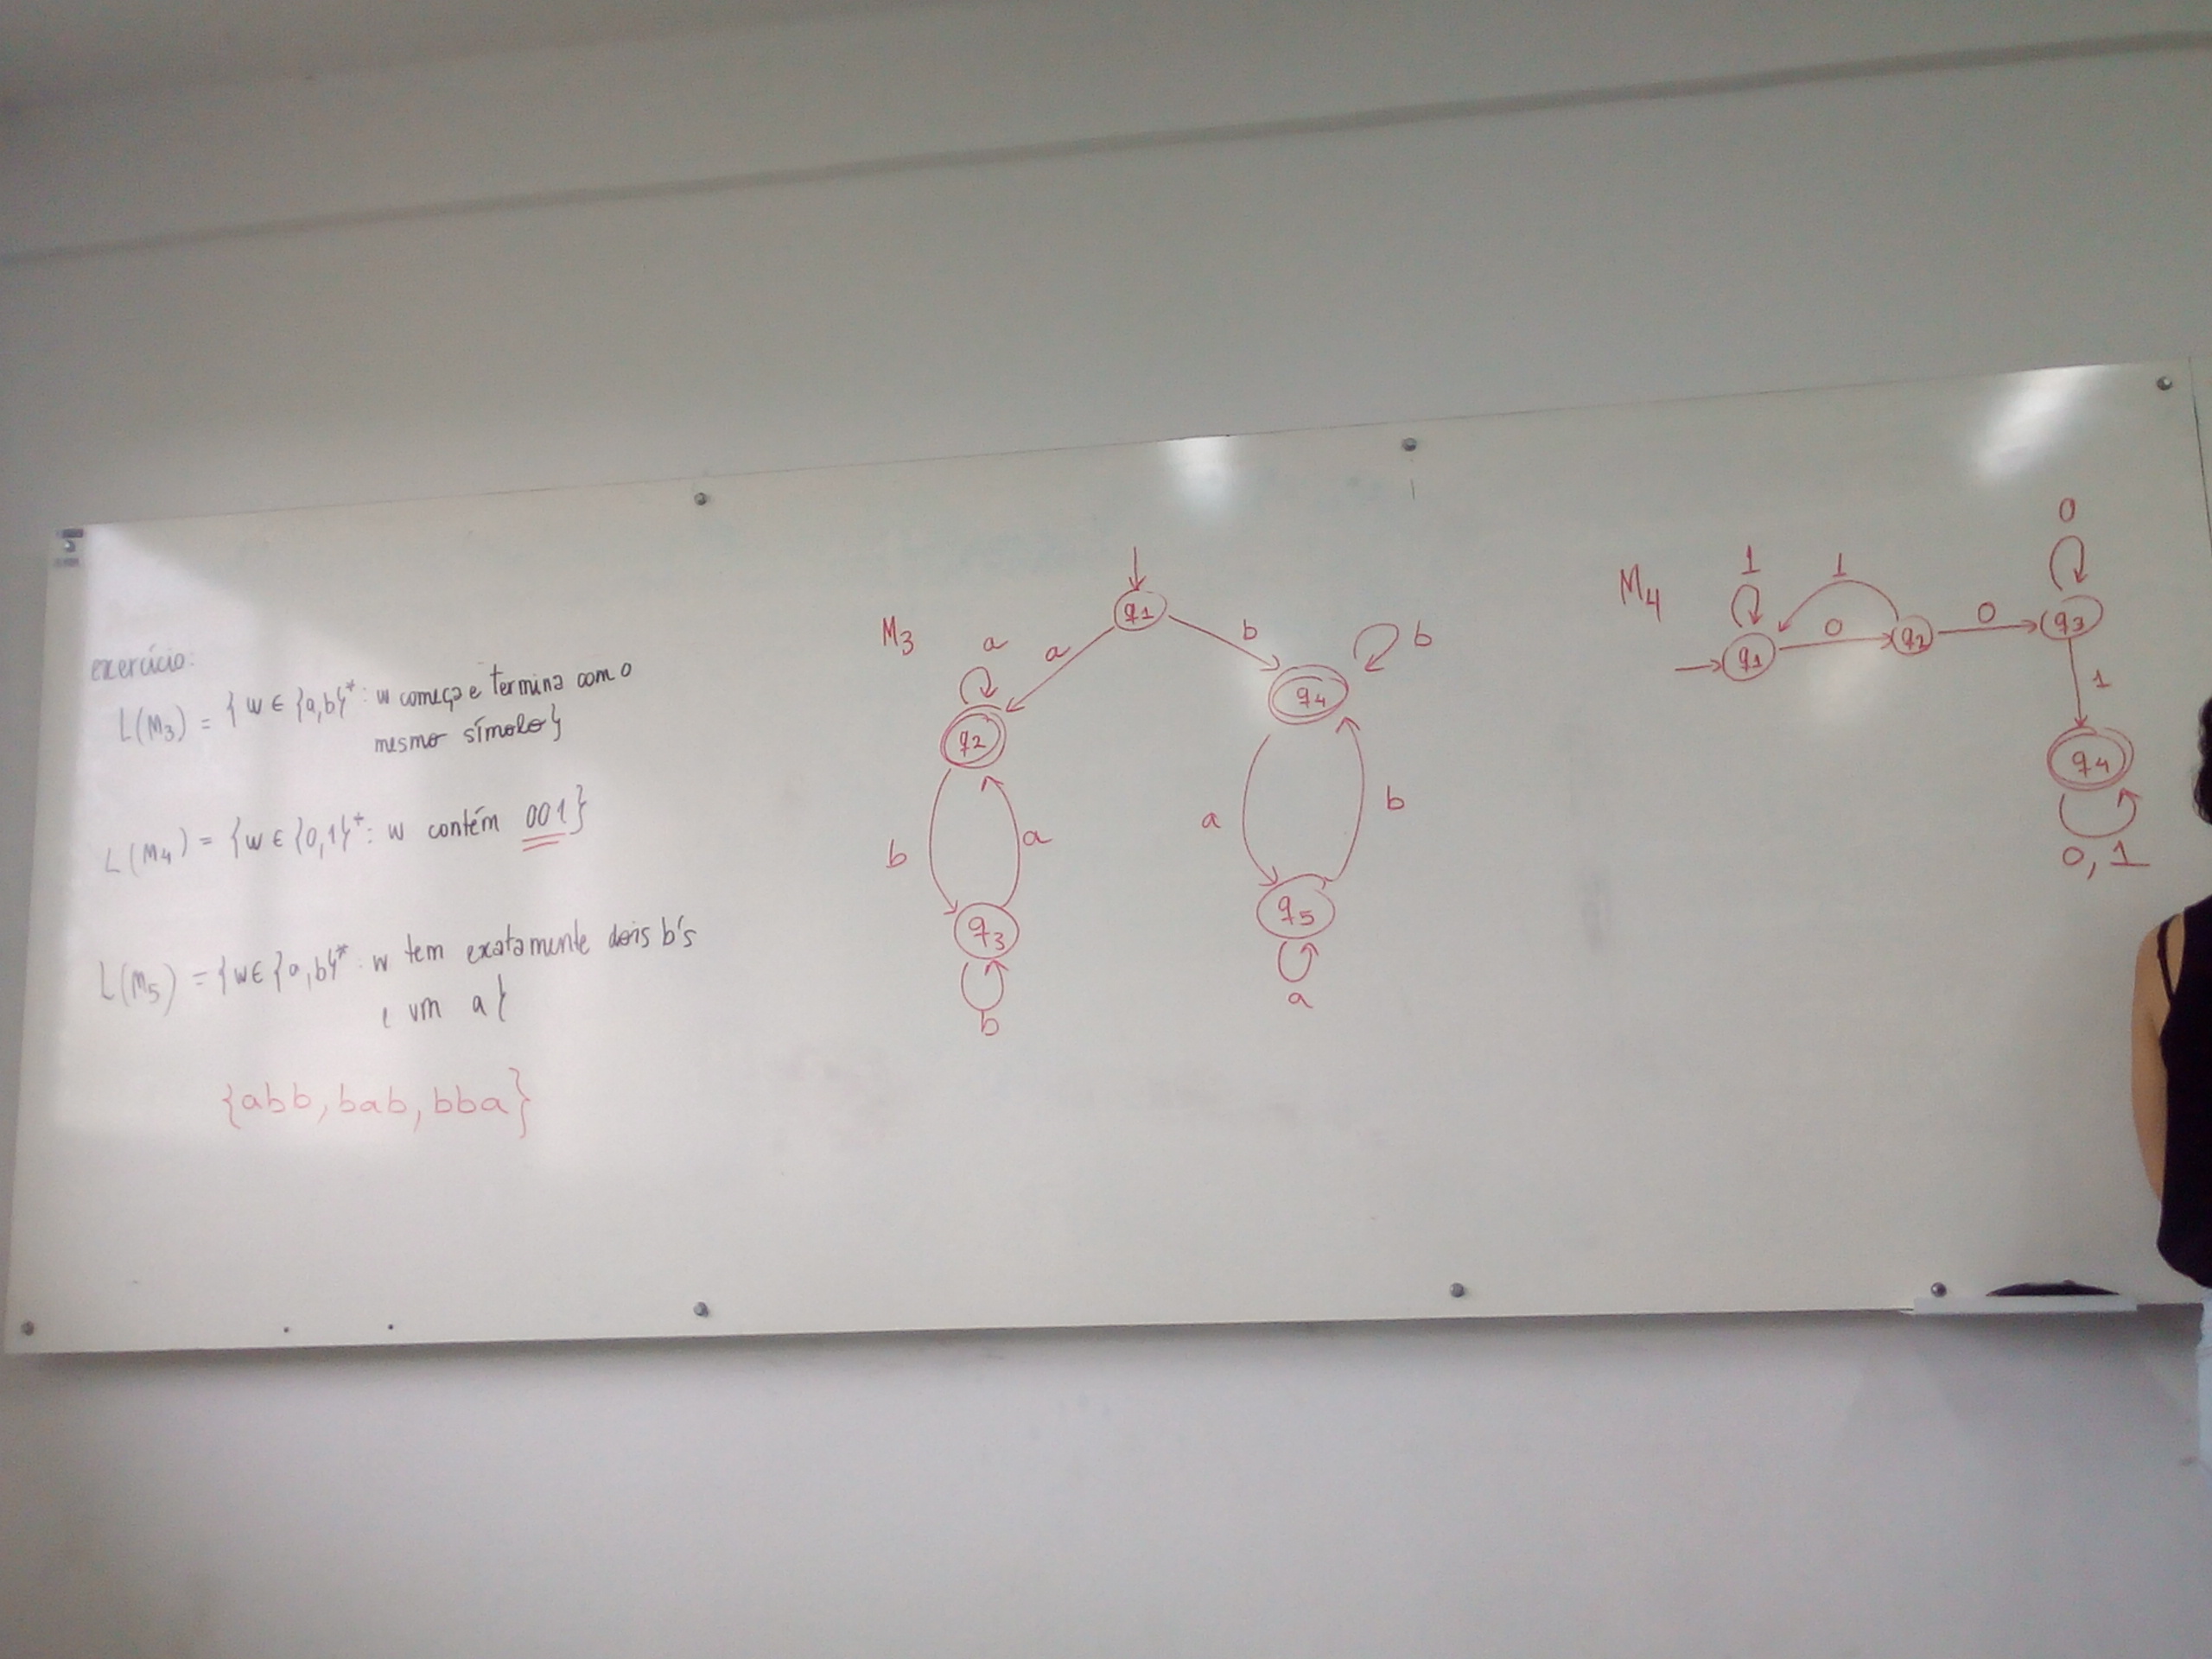 exercício:
L(M3) = {w ∈ {a,b}*: w começa e termina com o
mesmo símolo}
L(M4) = {w ∈ {0,1}*: w contém 001}
L(M5) = {w ∈ {a,b}*: w tem exatamente dois b's
e um a}
{abb, bab, bba}
M3
q1
a
b
a
q2
b
a
q3
b
q4
b
a
b
q5
a
M4
q1
1
0
1
q2
0
q3
0
1
q4
0, 1